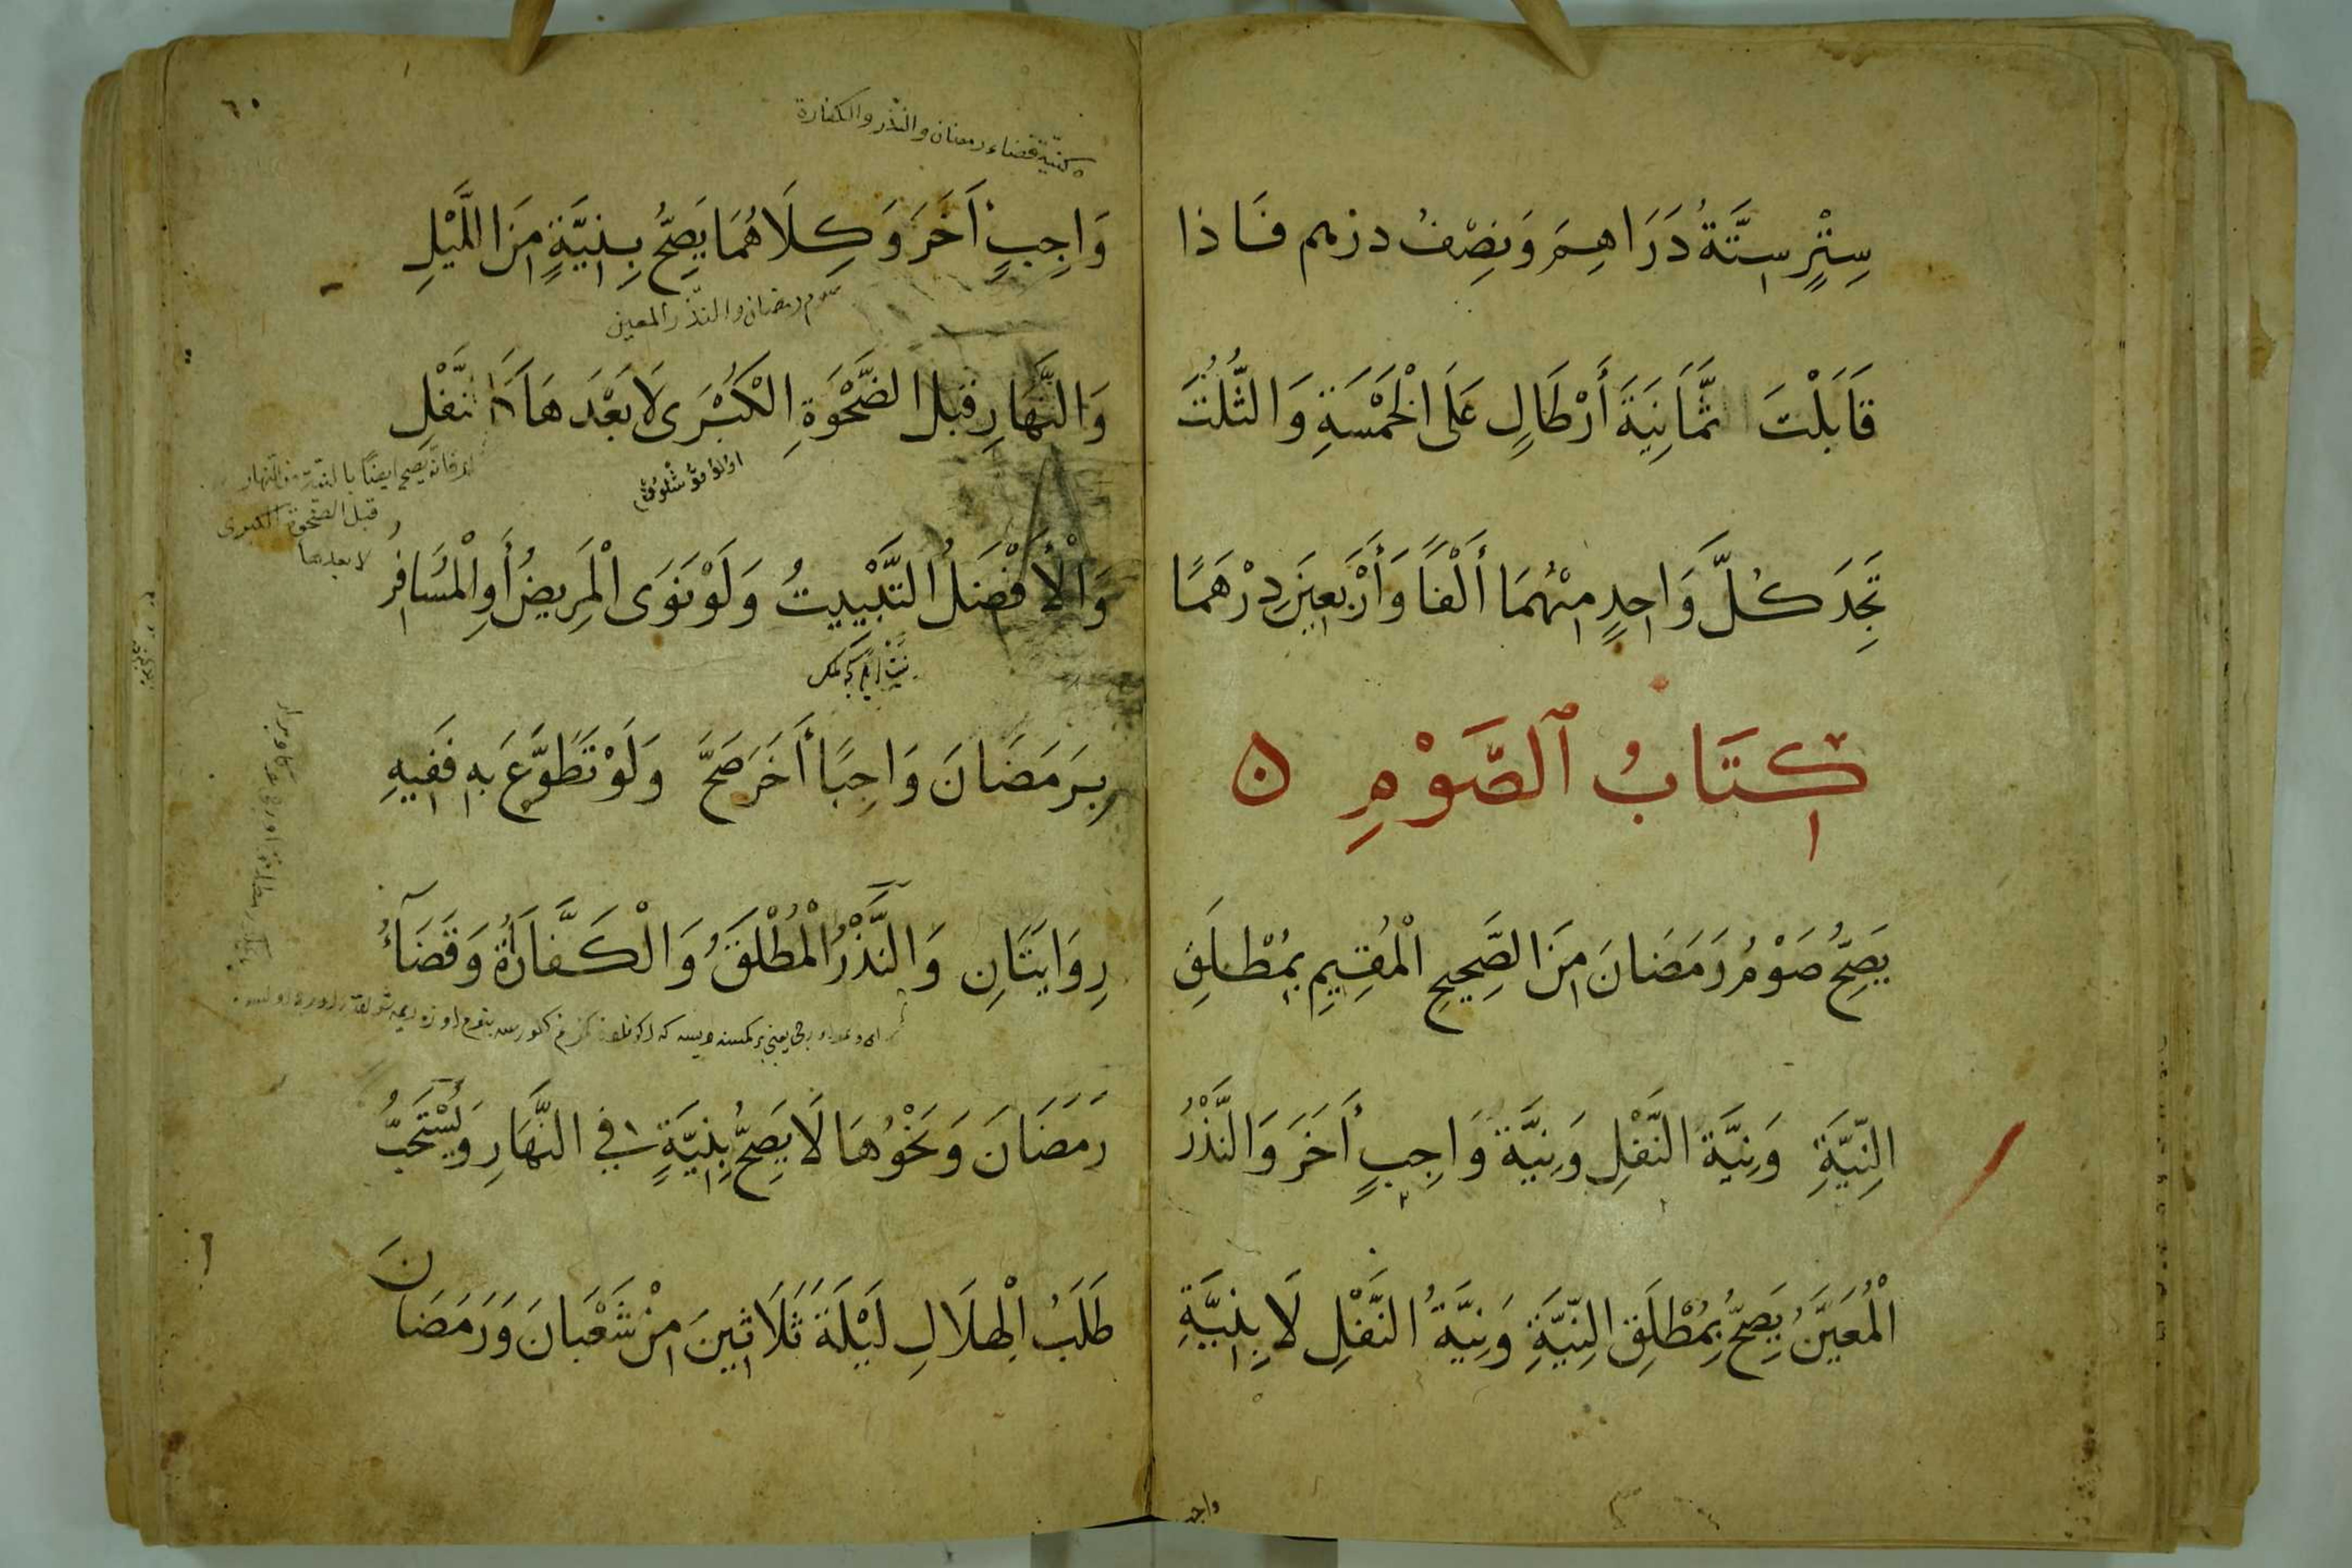 سِتْرٍ سِتَّةُ دَرَاهِمَ وَنِصْفُ درهم فَاذا
قَابَلْتَ ثَمَانِيَةَ أَرْطَالٍ عَلَى الْخَمْسَةِ وَالثُّلُثَ
تَجِدَ كُلَّ وَاحِدٍ مِنْهُمَا أَلْفًا وَأَرْبَعِينَ دِرْهَمًا
كِتَابُ الصَّوْمِ
يَصِحُّ صَوْمُ رَمَضَانَ مِنَ الصَّحِيحِ الْمُقِيمِ بِمُطْلَقِ
النِّيَّةِ وَنِيَّةِ النَّفْلِ وَنِيَّةِ وَاجِبٍ أَخَرَ وَالنَّذْرُ
الْمُعَيَّنُ يَصِحُّ بِمُطْلَقِ النِّيَّةِ وَنِيَّةُ النَّفْلِ لَا بِنِيَّةِ
واجب
٦٠
كنيّة قضاء رمضان والنذر والكفارة
وَاجِبٍ أَخَرَ وَكِلَاهُمَا يَصِحُّ بِنِيَّةٍ مِنَ اللَّيْلِ
صوم رمضان والنذر المعين
وَالنَّهَارِ قبل الضَّحْوَةِ الْكُبْرَى لَا بَعْدَهَا كَالنَّفْلِ
فانه يصح ايضًا بالنية من النهار
قبل الضحوة الكبرى
لا بعدها
وَالْأَفْضَلُ التَّبْيِيتُ وَلَوْ نَوَى الْمَرِيضُ أَوِ الْمُسَافِرُ
بِرَمَضَانَ وَاجِبًا أَخَرَ صَحَّ وَلَوْ تَطَوَّعَ بِهِ فَفِيهِ
رِوَايَتَانِ وَالنَّذْرُ الْمُطْلَقُ وَالْكَفَّارَةُ وَقَضَآءُ
رَمَضَانَ وَنَحْوُهَا لَا يَصِحُّ بِنِيَّةٍ فِي النَّهَارِ وَيُسْتَحَبُّ
طَلَبُ الْهِلَالِ لَيْلَةَ ثَلَاثِينَ مِنْ شَعْبَانَ وَرَمَضَانَ